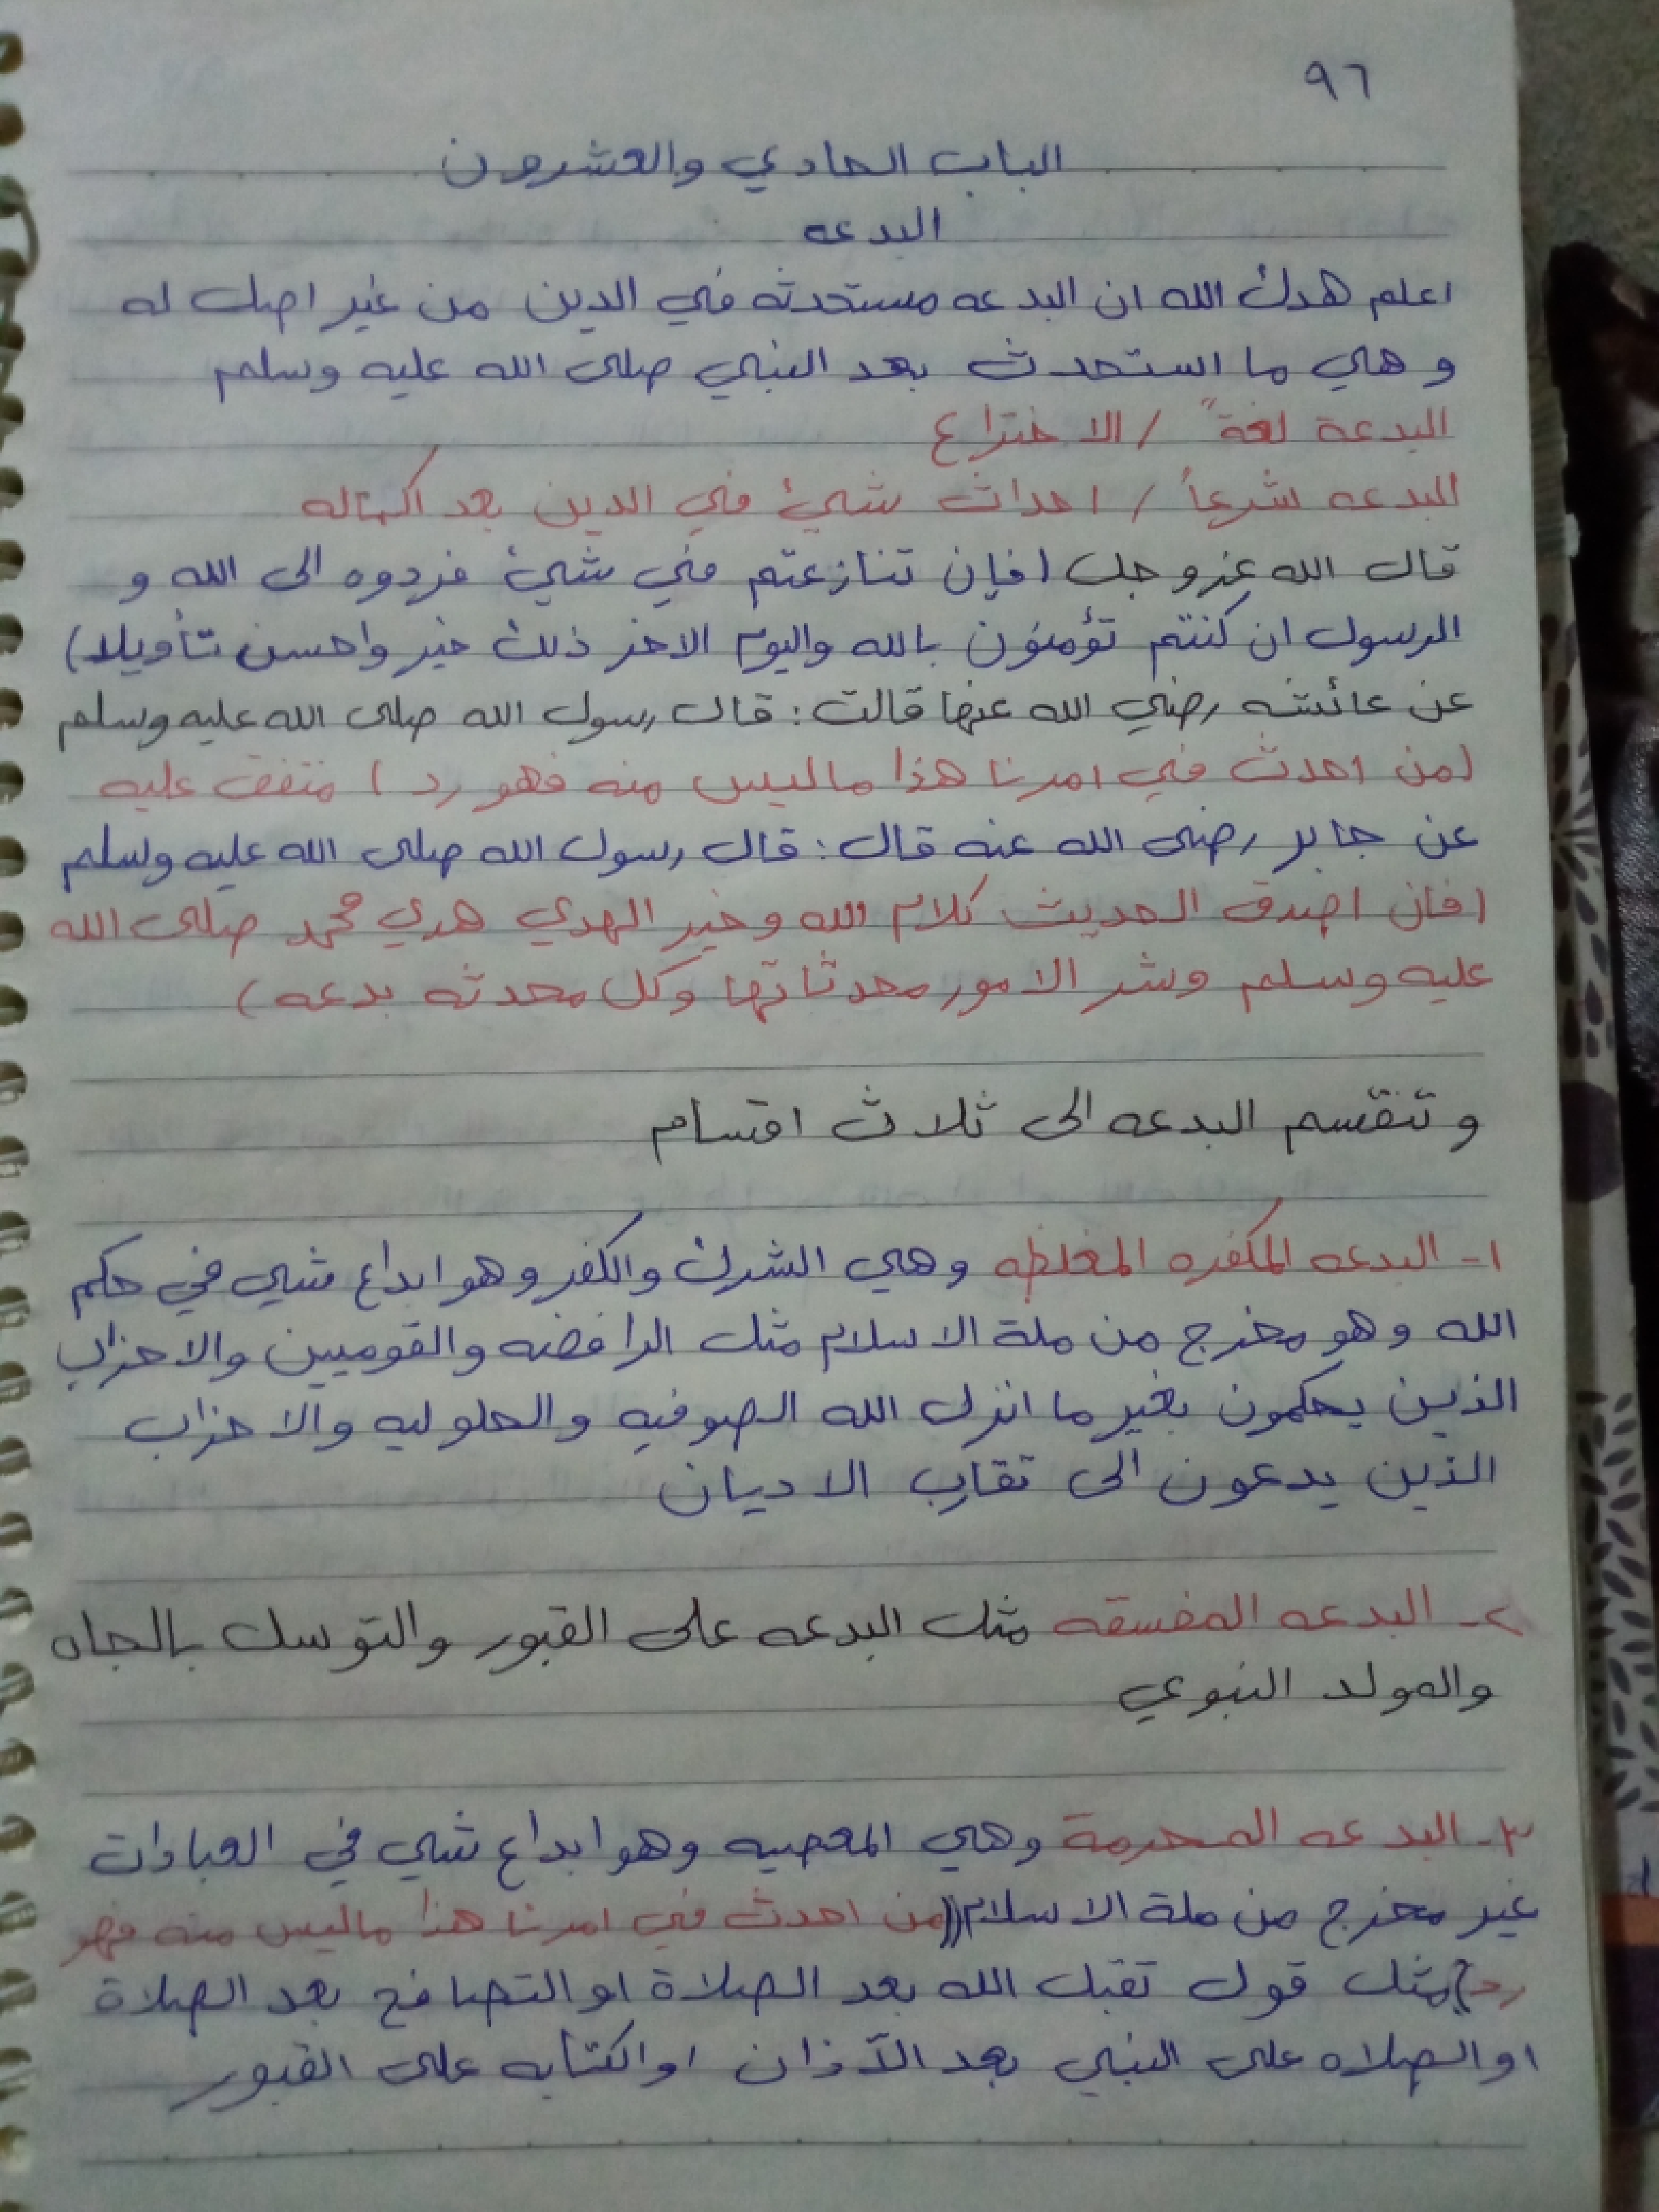 ٩٦
الباب الحادي والعشرون
البدعه
اعلم هدك الله ان البدعه مستحدثه في الدين من غير اصل له
وهي ما استحدث بعد النبي صلى الله عليه وسلم
البدعة لغةً / الاختراع
البدعه شرعاً / احداث شيئ في الدين بعد اكماله
قال الله عزوجل (فإن تنازعتم في شيئ فردوه الى الله و
الرسول ان كنتم تؤمنون بالله واليوم الاخر ذلك خير واحسن تأويلا)
عن عائشه رضي الله عنها قالت : قال رسول الله صلى الله عليه وسلم
(من احدث في امرنا هذا ماليس منه فهو رد) متفق عليه
عن جابر رضى الله عنه قال : قال رسول الله صلى الله عليه وسلم
(فان اصدق الحديث كلام الله وخير الهدي هدي محمد صلى الله
عليه وسلم وشر الامور محدثاتها وكل محدثه بدعه)
وتنقسم البدعه الى ثلاث اقسام
١- البدعه المكفره المغلظه وهي الشرك والكفر وهو ابداع شي في حكم
الله وهو مخرج من ملة الاسلام مثل الرافضه والقوميين والاحزاب
الذين يحكمون بغير ما انزل الله الصوفيه والحلوليه والاحزاب
الذين يدعون الى تقارب الاديان
٢- البدعه المفسقه مثل البدعه على القبور والتوسل بالجاه
والمولد النبوي
٣- البدعه المحرمة وهي المعصيه وهو ابداع شي في العبادات
غير مخرج من ملة الاسلام ((من احدث في امرنا هذا ماليس منه فهو
رد)) مثل قول تقبل الله بعد الصلاة او التصافح بعد الصلاة
او الصلاه على النبي بعد الآذان او الكتابه على القبور